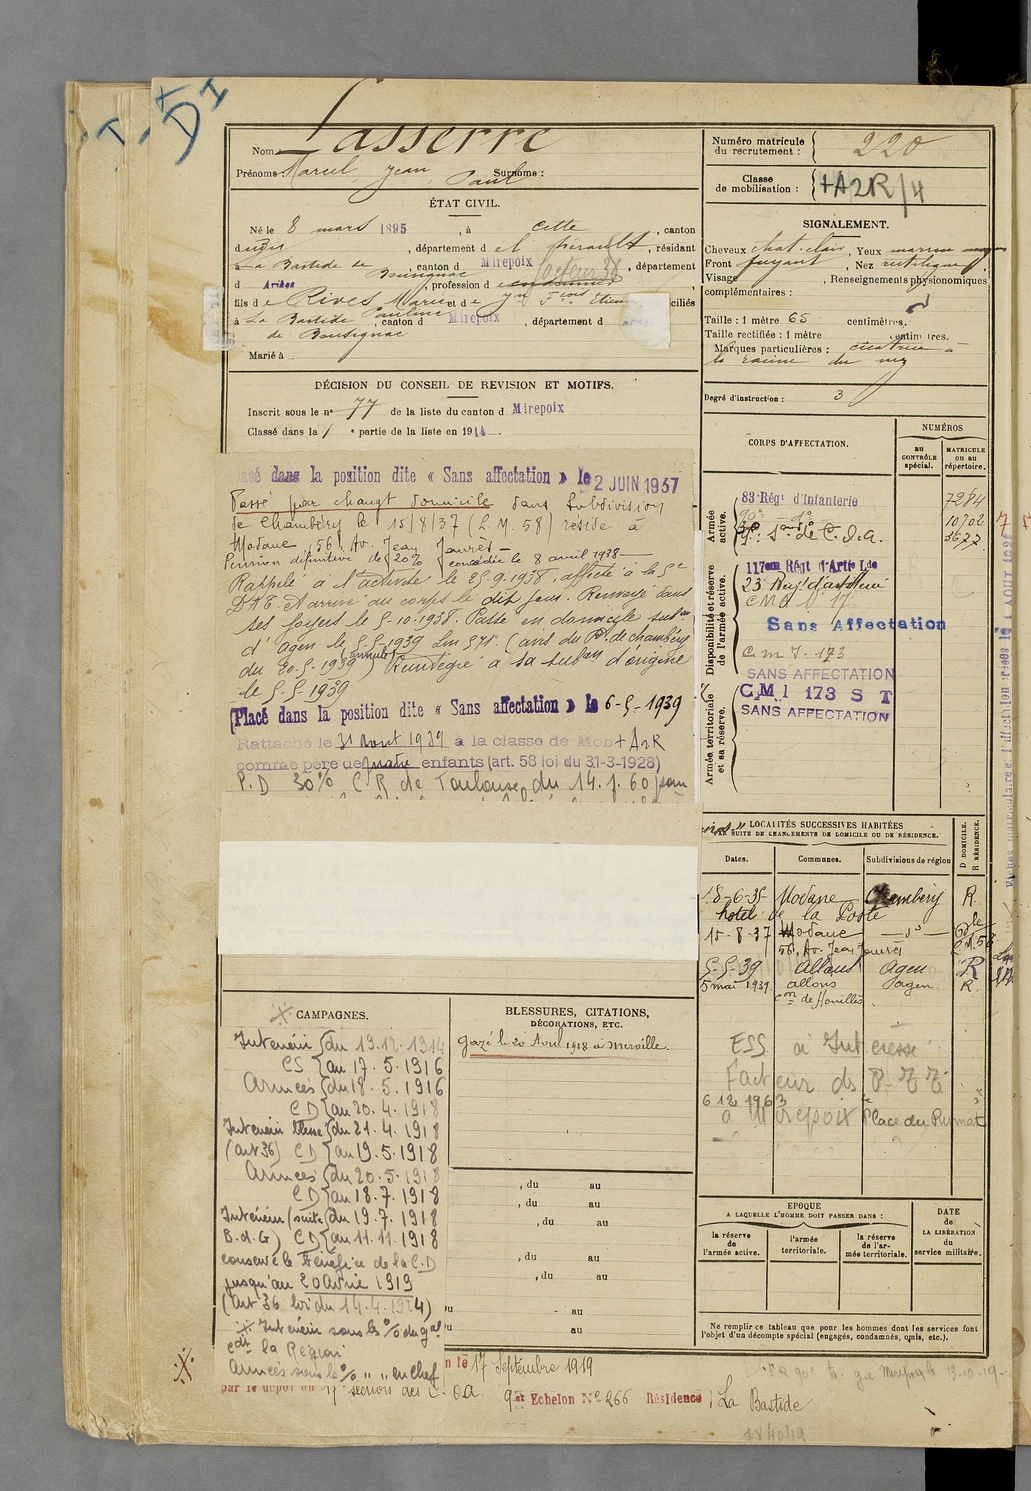 Nom Lasserre
Prénoms : Marcel Jean Paul Surnoms :
ÉTAT CIVIL.
Né le 8 mars 1895, à Cette, canton
dudit, département de l'Hérault, résidant
à La Bastide de Bousignac, canton d Mirepoix, département
d Ariège, profession de cordonnier facteur
fils de Rives Marie Pauline et de Etienne
à La Bastide de Bousignac, canton d Mirepoix, département d
Marié à
DÉCISION DU CONSEIL DE REVISION ET MOTIFS.
Inscrit sous le nº 77 de la liste du canton d Mirepoix
Classé dans la 1e partie de la liste en 1914.
Placé dans la position dite « Sans affectation » le 2 JUIN 1937
Passé par changt domicile dans Subdivision
de Chambéry le 15/8/37 (L.M. 58) réside à
Modane, 56, Av. Jean Jaurès –
Pension définitive de 20% concédée le 8 avril 1938
Rappelé à l'activité le 25.9.1938, affecté à la 5e
D.A.T. Arrivé au corps le dit jour. Renvoyé dans
ses foyers le 5-10-1938. Passé en domicile subon
d'Agen le 5-5-1939 (avis du R. de Chambéry
du 20.5.1939) annulé Réintégré à sa subon d'origine
le 5-5-1939
Placé dans la position dite « Sans affectation » le 6-5-1939
Rattaché le 31 Aout 1939 à la classe de Mob + A2R
comme père de quatre enfants (art. 58 loi du 31-3-1928)
P.D 30% C.R de Toulouse du 14.1.60 pour
CAMPAGNES.
Intérieur du 19.12.1914
CS au 17.5.1916
Armées du 18.5.1916
CD au 20.4.1918
Intérieur blessé du 21.4.1918
(art 36) CD au 19.5.1918
Armées du 20.5.1918
CD au 18.7.1918
Intérieur (suite du 19.7.1918
B.d.G) CD au 11.11.1918
conserve le bénéfice de la C.D
jusqu'au 20 Avril 1919
(art 36 loi du 14.4.1924)
Intérieur sous les o/o du gal
cdt la Région
Armées sous les o/o " " en chef
BLESSURES, CITATIONS,
DÉCORATIONS, ETC.
Gazé le 20 Avril 1918 à Merville.
, du au
, du au
, du au
, du au
, du au
au
au
n le 17 Septembre 1919
par le dépôt du section des C.O.A. Echelon Nº 266 Résidence La Bastide
Numéro matricule
du recrutement : 220
Classe
de mobilisation : +A2R/4
SIGNALEMENT.
Cheveux chat. clair, Yeux marron
Front fuyant, Nez rectiligne
Visage , Renseignements physionomiques
complémentaires :
Taille : 1 mètre 65 centimètres.
Taille rectifiée : 1 mètre centimètres.
Marques particulières : cicatrice à
la racine du nez
Degré d'instruction : 3
CORPS D'AFFECTATION.
NUMÉROS
au CONTRÔLE spécial.
MATRICULE ou au répertoire.
Armée active.
83e Régt d'Infanterie 7284
90e - do 10702
Son de C.O.A. 3677
Disponibilité et réserve de l'armée active.
117eme Régt d'Artie Lde
23 Regt d'artillerie
C M A N° 17
Sans Affectation
C m I - 173
SANS AFFECTATION
Armée territoriale et sa réserve.
C.M.I 173 S T
SANS AFFECTATION
LOCALITÉS SUCCESSIVES HABITÉES
PAR SUITE DE CHANGEMENTS DE DOMICILE OU DE RÉSIDENCE.
Dates. Communes. Subdivisions de région D DOMICILE. R RÉSIDENCE.
18-6-35 Modane Chambéry R
hotel de la Poste
15-8-37 Modane – do –
56, Av. Jean Jaurès
5-5-39 Allons Agen R
5 mai 1939 allons Agen R
con de Houillès
ESS à Intéressé
facteur des P.T.T.
6 12 1963
à Mirepoix Place du Rumat
EPOQUE
A LAQUELLE L'HOMME DOIT PASSER DANS :
DATE de LA LIBÉRATION du service militaire.
la réserve de l'armée active.
l'armée territoriale.
la réserve de l'armée territoriale.
Ne remplir ce tableau que pour les hommes dont les services font
l'objet d'un décompte spécial (engagés, condamnés, omis, etc.).
13-10-19